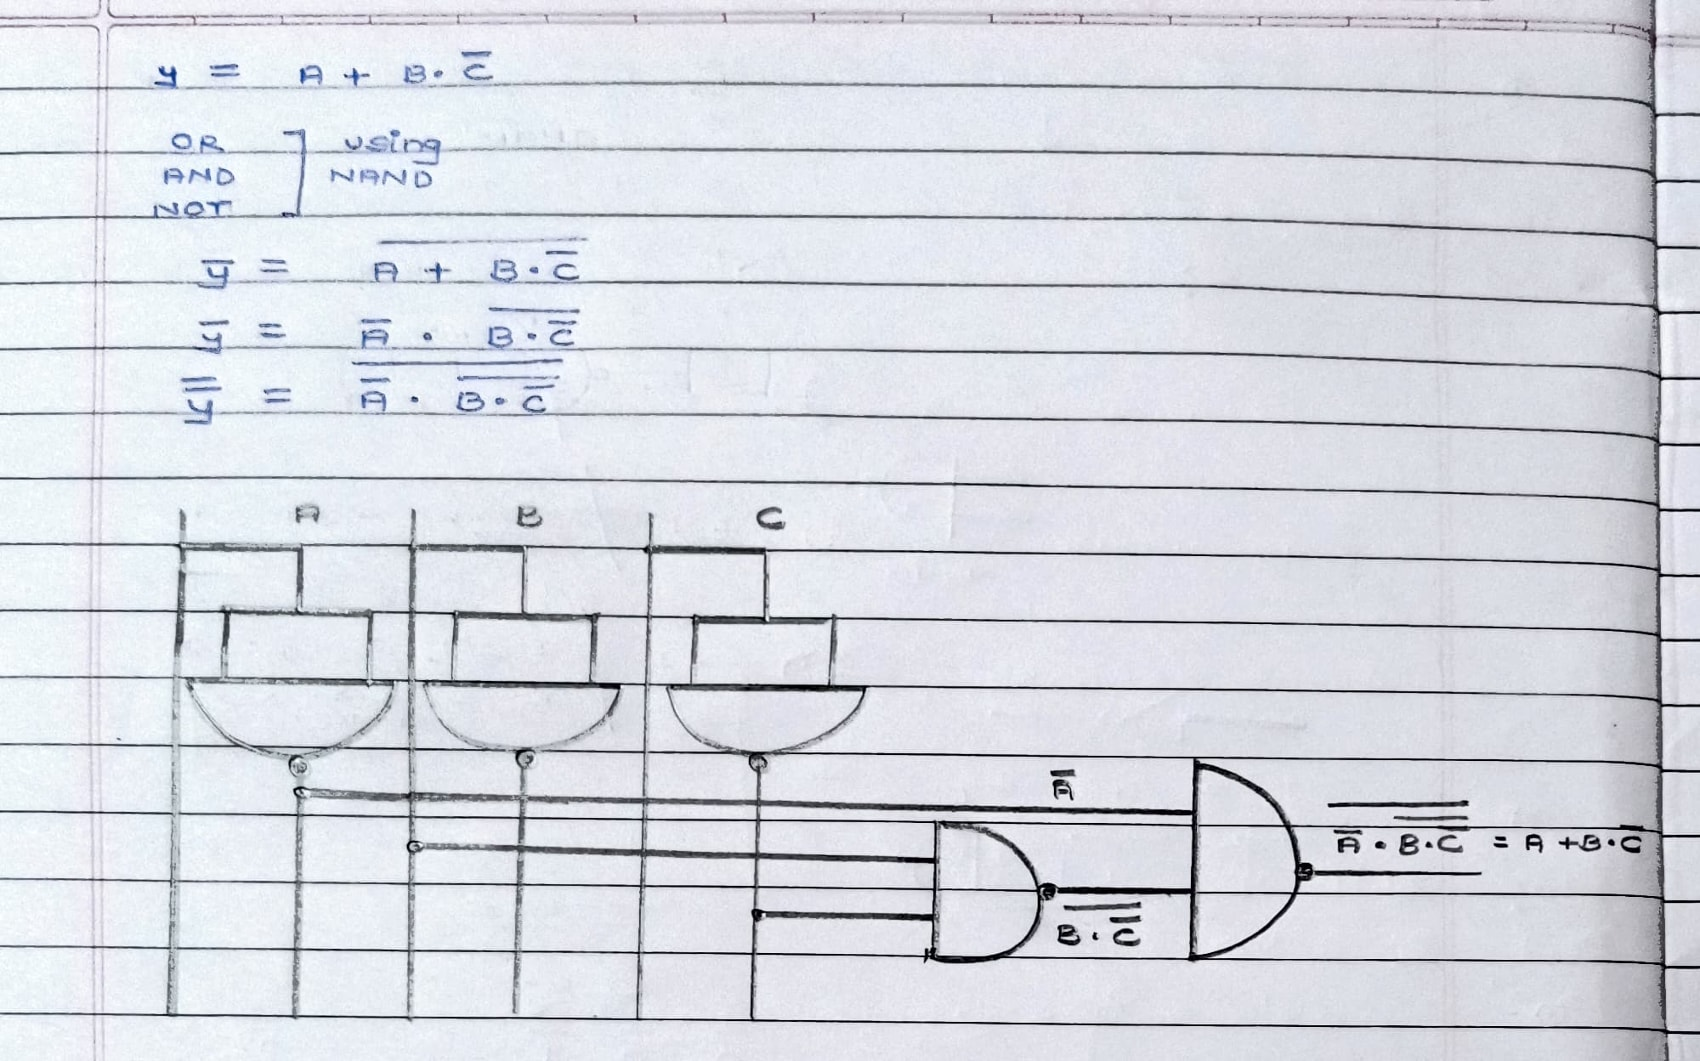 y = A + B·C̅
OR
AND
NOT
using
NAND
y̅ = \overline{A + B·\overline{C}}
y̅ = \overline{A} · \overline{B·\overline{C}}
\overline{\overline{y}} = \overline{\overline{A} · \overline{B·\overline{C}}}
A B C
\overline{A}
\overline{\overline{A}·\overline{B·\overline{C}}} = A + B·\overline{C}
\overline{B·\overline{C}}